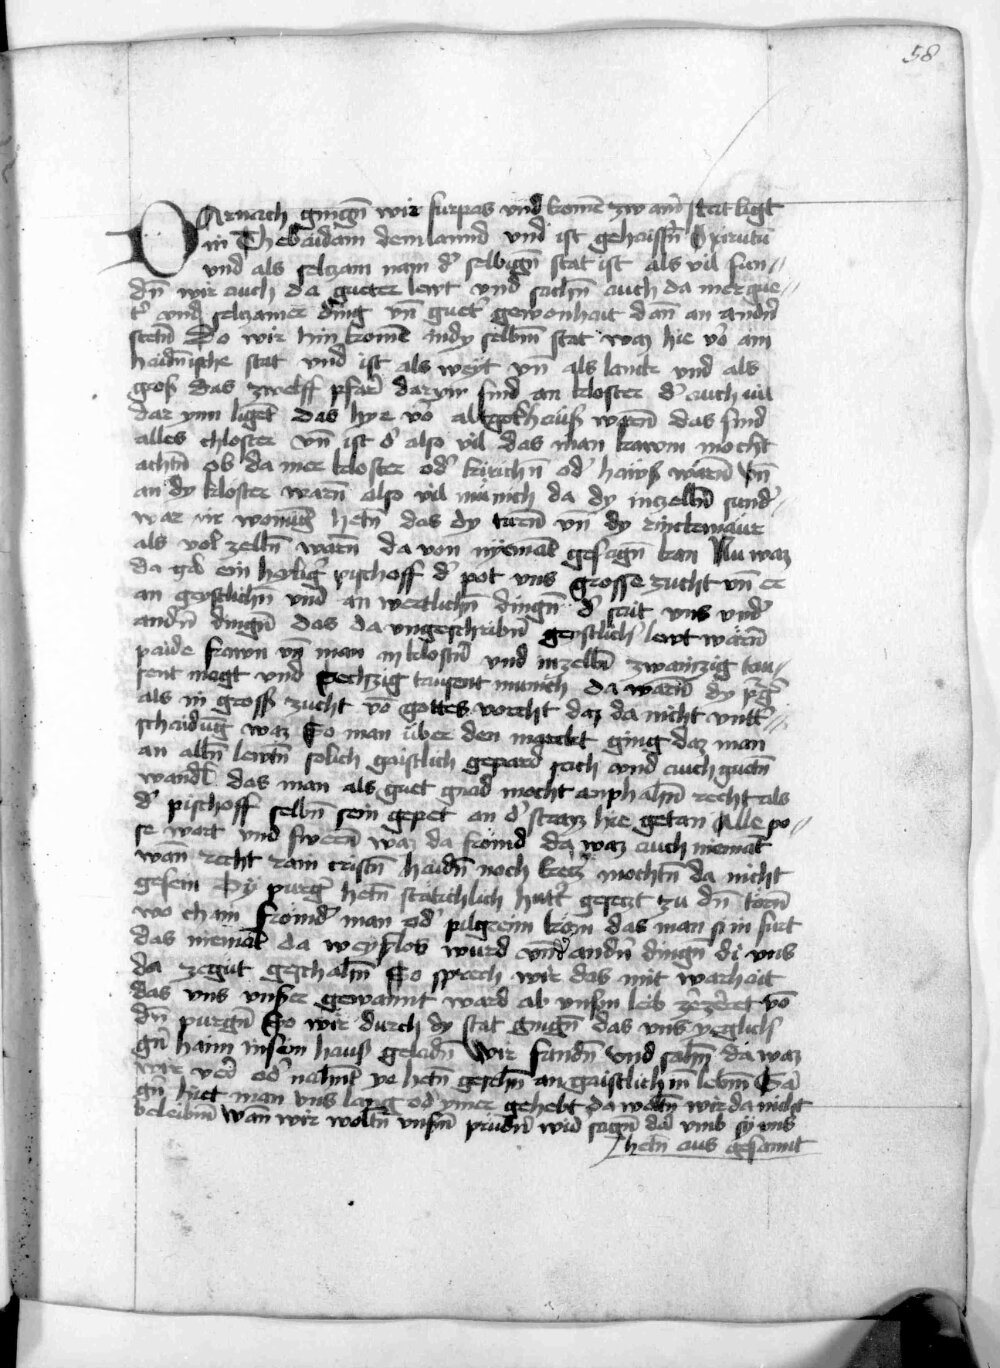 58
DArnach gingn̄ wir furpas vnd komē zw ainr̄ stat ligt
in Thebaidam dem lannd vnd ist gehaissn̄ Oxirutū
vnd als seltzam nam dˀ selbign̄ stat ist als vil fun⸗
dn̄ wir auch da gueter lewt vnd sachn̄ auch da mer gue⸗
tˀ vnd seltzamer ding vn̄ guetˀ gewonhait dan̄ an andn̄
stetn̄ Do wir hin komē in dy selbm̄ stat waz hie vō ain
haidnische stat vnd ist als weyt vn̄ als lanck vnd als
groß das zwelff pfarˀ darynn sind an kloster dˀ auch vil
dar ynn ligēt das hye vō abtgothewß warn̄ das sind
alles chloster vn̄ ist dˀ also vil das man kawm mocht
achtn̄ ob da mer kloster odˀ kirichn̄ odˀ hewß warn̄ vn̄
an dy kloster warn̄ also vil münich da dy in zelln̄ sundˀ⸗
war ir wonūg hetn̄ das dy turn̄ vn̄ dy rinckmaur
als vol zelln̄ warn̄ da von nyemāt gesagn̄ kan Nu waz
da gar ein heyligˀ pischoff dˀ pot vns grosse zucht vn̄ er
an geystlichn̄ vnd an werltlichn̄ dingn̄ dˀ sait vns vndˀ
andˀn̄ dingn̄ das da vngeschribn̄ geystlichˀ lewt wārn̄
paide frawn vn̄ man in klostn̄ vnd in zelln̄ zwainzig tau⸗
sent magt vnd sechzig tausent munich da warn̄ dy pˀgˀ
als in grosß zucht vō gottes vorcht daz da nicht vnttˀ⸗
schaidūg waz So man über den marckt ging daz man
an altn̄ lewtn̄ solich gaistlich gepard sach vnd auch guetn̄
wandl das man als guet gnad mocht anphahn̄ recht als
dˀ pischoff selbn̄ sein gepet an dˀ straz hie getan Alle po⸗
se wort vnd swern̄ waz da frömd da waz auch niemāt
wan̄ recht rain cristn̄ haidn̄ noch ketz mochtn̄ da nicht
gesein Dy purgˀ hetn̄ stātichlich huttˀ gesetzt zu dn̄ törn̄
wo cham frömdˀ man odˀ pilgreim kōm das man si in furt
das niemāt da weyslos wurd vndˀ andn̄ dingn̄ di vns
da zegut geschahn̄ So sprech wir das mit warhait
das vns vnser gewannt ward ab vnsm̄ leib zezēret vō
dn̄ purgn̄ So wir durch dy stat gingn̄ das vns yeglichs
gn̄ haim in sein hauß geladn̄ Wir fundn̄ vnd sahn̄ da waz
wir verˀ odˀ nahn̄t ye hetn̄ gesehn̄ an gaistlichm̄ lebm̄
gn̄ hiet man vns lang odˀ ymer gehebt da woltn̄ wir da nicht
beleibn̄ wan wir woltn̄ vnsn̄ prudn̄ wid sagn̄ da vmb sy vns
hetn̄ aus gesannt